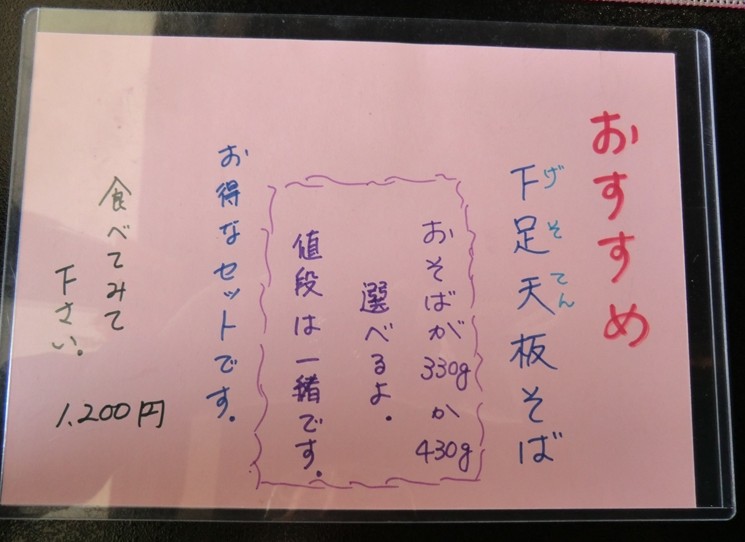 おすすめ
下足天板そば
げそてん
おそばが330gか430g
選べるよ。
値段は一緒です。
お得なセットです。
食べてみて
下さい。
1,200円